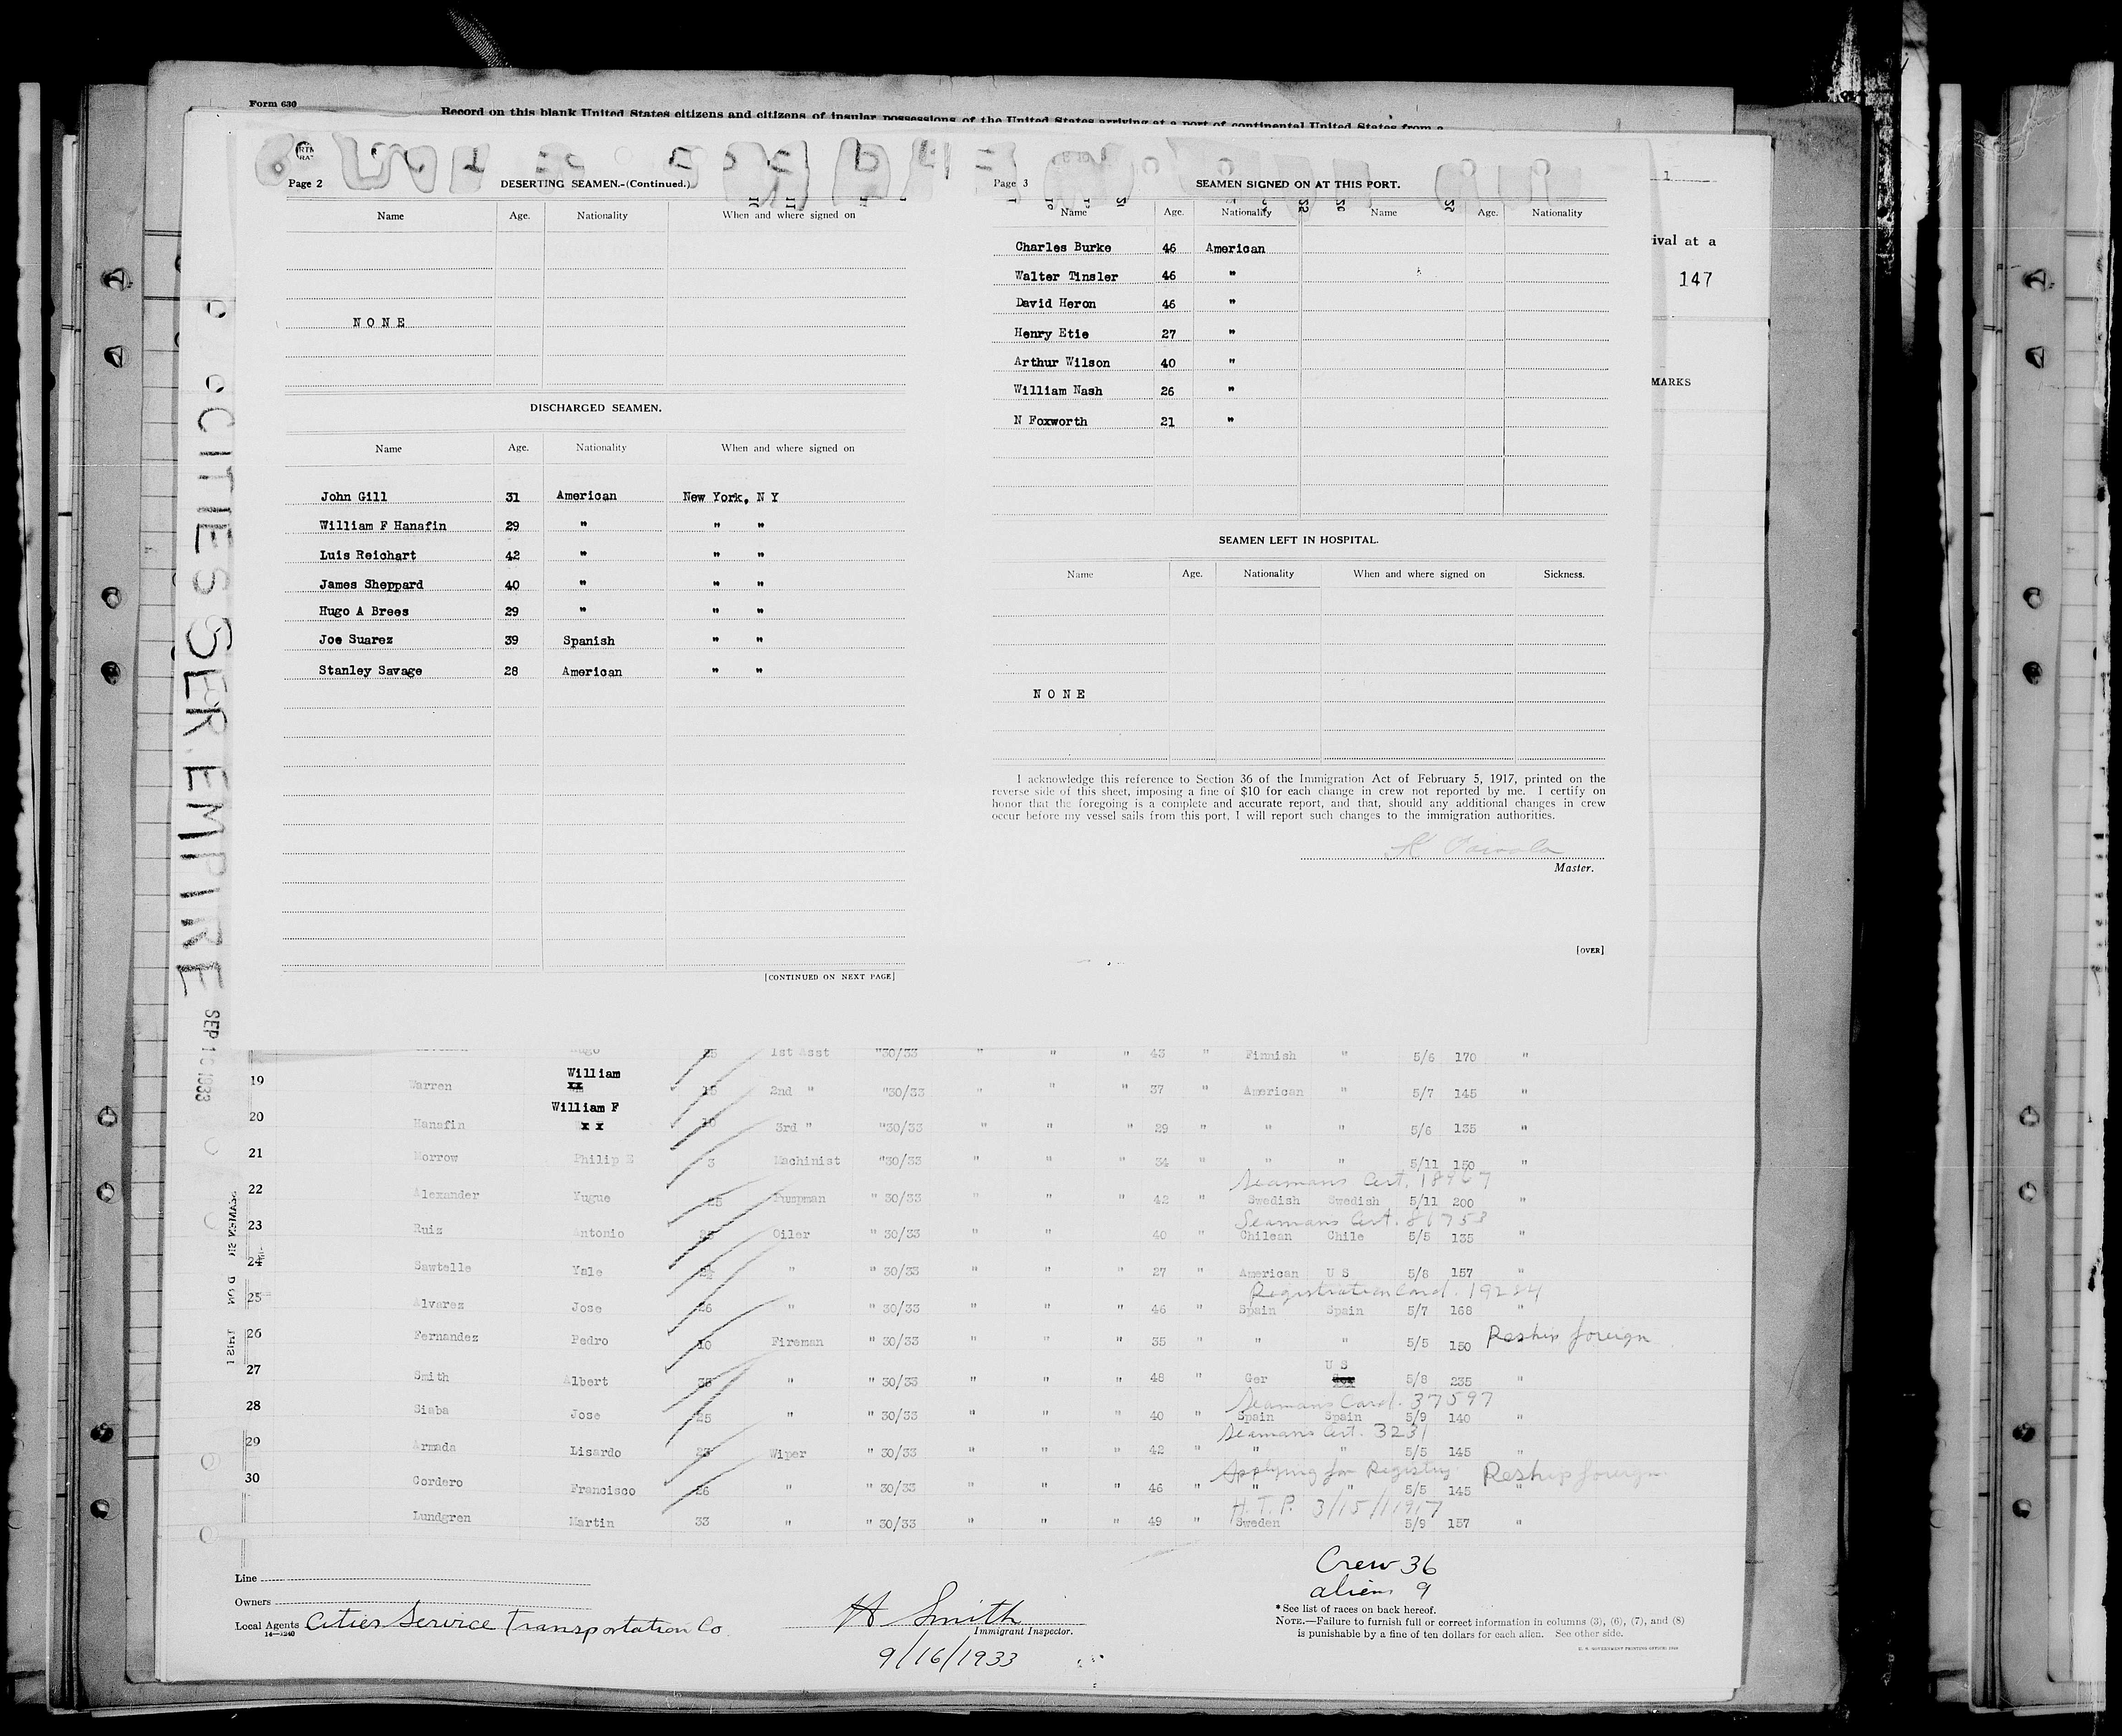 Form 630
Record on this blank United States citizens and citizens of insular possessions of the United States arriving at a port of continental United States from a
Page 2
DESERTING SEAMEN.-(Continued.)
Name Age. Nationality When and where signed on
NONE
DISCHARGED SEAMEN.
Name Age. Nationality When and where signed on
John Gill 31 American New York, N Y
William F Hanafin 29 " " "
Luis Reichart 42 " " "
James Sheppard 40 " " "
Hugo A Brees 29 " " "
Joe Suarez 39 Spanish " "
Stanley Savage 28 American " "
[CONTINUED ON NEXT PAGE]
Page 3
SEAMEN SIGNED ON AT THIS PORT.
Name Age. Nationality Name Age. Nationality
Charles Burke 46 American
Walter Tinsler 46 "
David Heron 46 "
Henry Etie 27 "
Arthur Wilson 40 "
William Nash 26 "
N Foxworth 21 "
SEAMEN LEFT IN HOSPITAL.
Name Age. Nationality When and where signed on Sickness.
NONE
I acknowledge this reference to Section 36 of the Immigration Act of February 5, 1917, printed on the
reverse side of this sheet, imposing a fine of $10 for each change in crew not reported by me. I certify on
honor that the foregoing is a complete and accurate report, and that, should any additional changes in crew
occur before my vessel sails from this port, I will report such changes to the immigration authorities.
Master.
[OVER]
1
ival at a
147
MARKS
CITIES SER. EMPIRE
SEP 1 1933
Hugo 25 1st Asst "30/33 " " " 43 " Finnish " 5/6 170 "
William
19 Warren xx 15 2nd " "30/33 " " " 37 " American " 5/7 145 "
William F
20 Hanafin x x 10 3rd " "30/33 " " " 29 " " " 5/6 135 "
21 Morrow Philip E 3 Machinist "30/33 " " " 34 " " " 5/11 150 "
Seamans Cert. 18967
22 Alexander Yugue 25 Pumpman " 30/33 " " " 42 " Swedish Swedish 5/11 200 "
Seamans Cert. 86753
23 Ruiz Antonio Oiler " 30/33 " " 40 " Chilean Chile 5/5 135 "
24 Sawtelle Yale " " 30/33 " " " 27 " American U S 5/8 157 "
Registration Card. 19284
25 Alvarez Jose 26 " " 30/33 " " " 46 " Spain Spain 5/7 168 "
26 Fernandez Pedro 10 Fireman " 30/33 " " " 35 " " " 5/5 150 Reship foreign
U S
27 Smith Albert 38 " " 30/33 " " " 48 " Ger Ger 5/8 235 "
Seamans Card. 37597
28 Siaba Jose 25 " " 30/33 " " " 40 " Spain Spain 5/9 140 "
Seamans Cert. 3231
29 Armada Lisardo 23 Wiper " 30/33 " " " 42 " " " 5/5 145 "
Applying for Registry Reship foreign
30 Cordero Francisco 26 " " 30/33 " " " 46 " " " 5/5 145 "
H. T. P. 3/15/1917
Lundgren Martin 33 " " 30/33 " " " 49 " Sweden 5/9 157 "
Crew 36
aliens 9
Line
Owners
Local Agents Cities Service Transportation Co.
14-1240
H Smith
Immigrant Inspector.
9/16/1933
*See list of races on back hereof.
NOTE.—Failure to furnish full or correct information in columns (3), (6), (7), and (8)
is punishable by a fine of ten dollars for each alien. See other side.